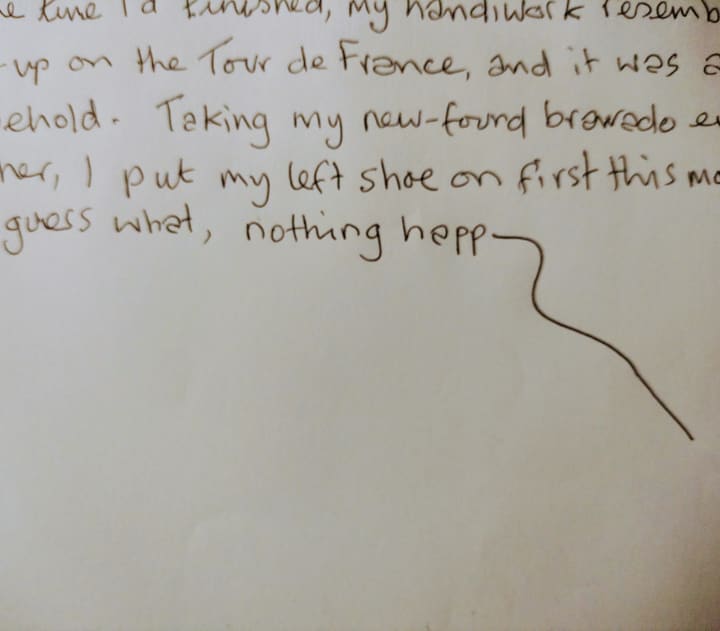 time I'd finished, my handiwork resemb
-up on the Tour de France, and it was a
ehold. Taking my new-found bravado e
her, I put my left shoe on first this mo
guess what, nothing happ